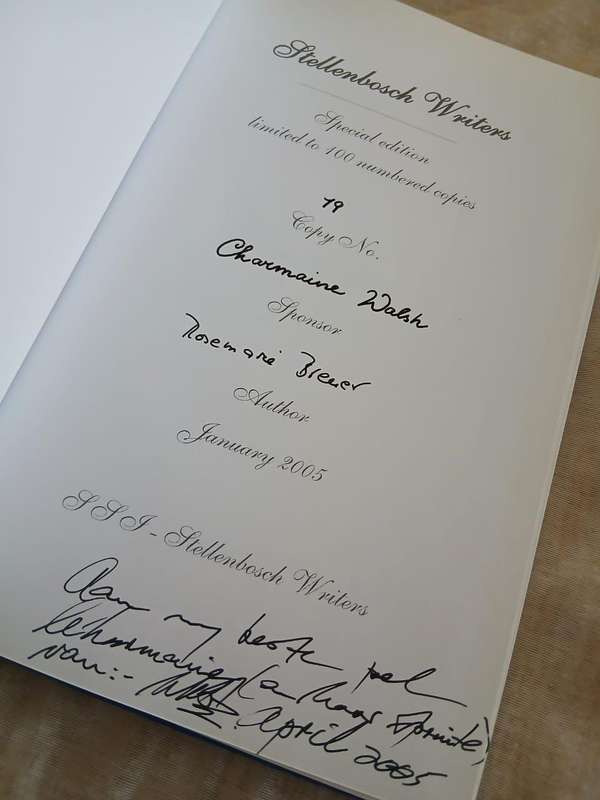 Stellenbosch Writers
Special edition
limited to 100 numbered copies
79
Copy No.
Charmaine Walsh
Sponsor
Rosemarie Breuer
Author
January 2005
SSI - Stellenbosch Writers
Aan my beste pel
van:- April 2005